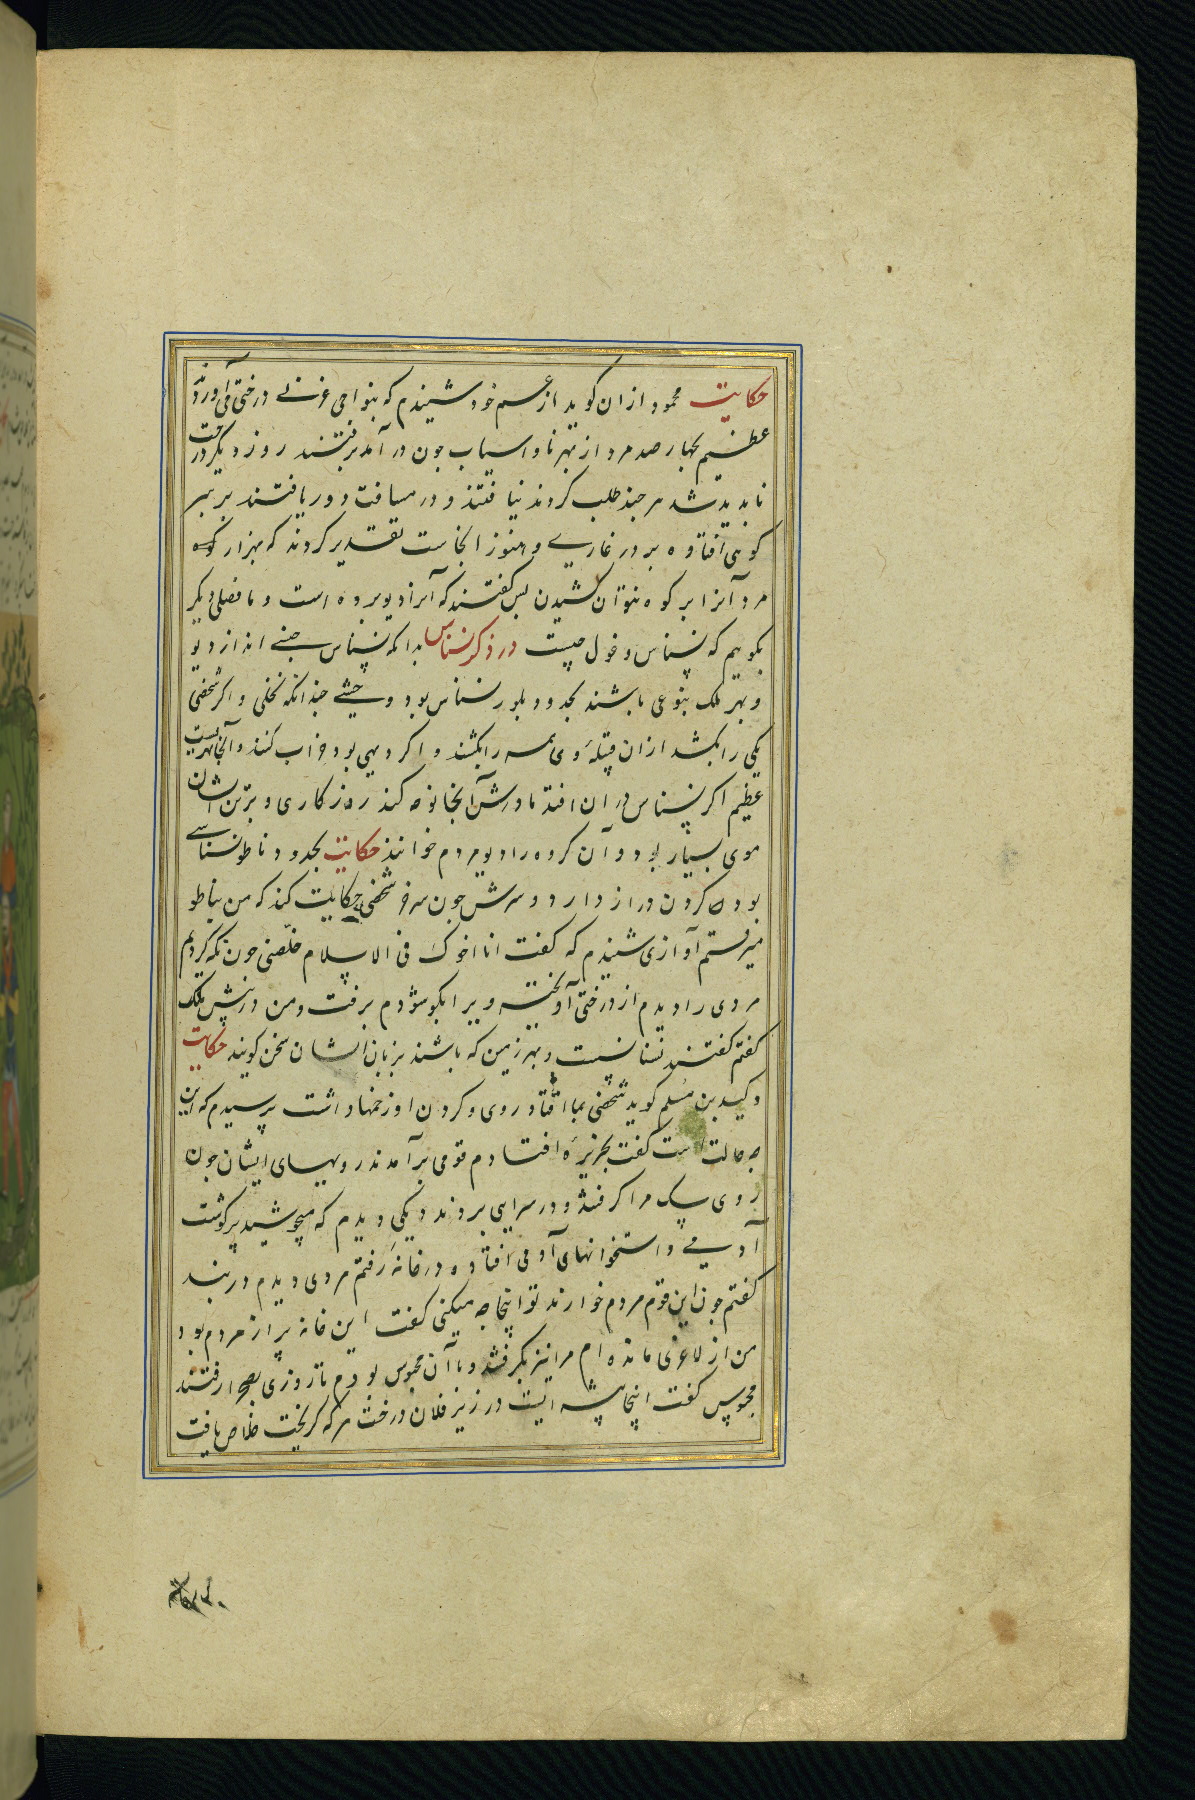 حکایت محمود ازان کوید از عم خود شنیدم که بنواحی غزنے درختی می‌آوردند
عظیم بچهار صد مرد از بهر ناو اسیاب جون در آمد برفتند روز دیکر درخت
نابدید شد هر جند طلب کردند نیافتند و در مسافت دور یافتند بر سر
کوهی افتاده بر در غاری و هنوز انجاست تقدیر کردند که بهزار کوسه
مرد آنرا بر کوه نتوان کشیدن بس کفتند که آنرا دیو برده است و ما فصلی دیکر
بکوییم که نسناس و غول جیست در ذکر نسناس بدانکه نسناس جنسے اند از دیو
و بهر ملک بنوعی باشند بحدود بلور نسناس بود وحشے جندانکه نخلی و اکر شخصی
یکی را بکشد ازان قبیلهٔ وی همه را بکشند و اکر دیهی بود خراب کنند و آنجا نهریست
عظیم اکر نسناس در ان افتد مادرش آنجا نوحه کند روزکاری و بر تن ایشان
موی بسیار بود و آن کروه را دیو مردم خوانند حکایت بحدود ناطو نسناسے
بود کردن دراز دارد و سرش جون سر شخصی حکایت کند که من بناطو
میرفتم آوازی شنیدم که کفت انا اخوک فی الاسلام خلّصنی جون نکه کردم
مردی را دیدم از درختی آویخته ویرا بکوشودم برفت و من در پیش ملک
کفتم کفتند نسناسست و بهر زمین که باشند بزبان ایشان سخن کویند حکایت
وکید بن مسلم کوید شخصی بما افتاد روی و کردن او زخمها داشت پرسیدم که این
جه حالت است کفت بجزیرهٔ افتادم قومی برآمدند رویهای ایشان جون
روی سک مرا کرفتند و در سرایی بردند دیکی دیدم که میجوشید پر کوشت
آدمے و استخوانهای آدمی افتاده در خانهٔ رفتم مردی دیدم در بند
کفتم جون این قوم مردم خوارند تو اینجا جه میکنی کفت این خانه پر از مردم بود
من از لاغری مانده ام مرا نیز بکرفتند و با آن محبوس بودم تا روزی بصحرا رفتند
محبوس کفت اینجا بیشه ایست در زیر فلان درخت هر که کریخت خلاص یافت